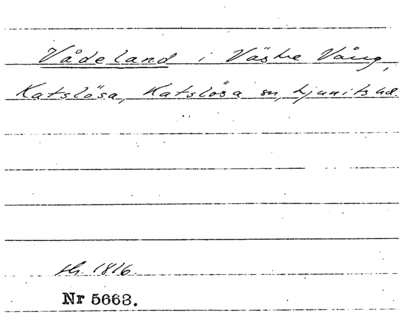 Vådeland i Västra Vång,
Katslösa, Katslösa sn, Ljunits hd.
sk. 1816.
Nr 5663.